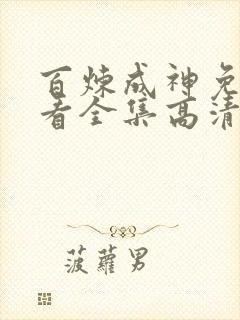 百炼成神免
看全集高清
菠蘿男